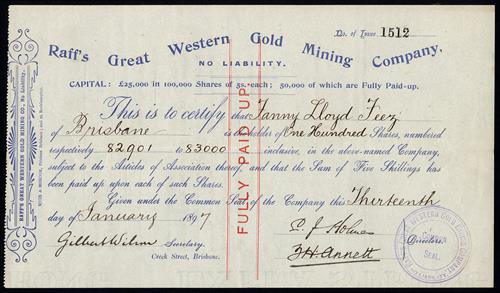 No. of Issue 1512
Raff's Great Western Gold Mining Company,
NO LIABILITY.
CAPITAL: £25,000 in 100,000 Shares of 5s. each; 50,000 of which are Fully Paid-up.
This is to certify that Fanny Lloyd Feez
of Brisbane is the holder of One Hundred Shares, numbered
respectively 82901 to 83000 inclusive, in the above-named Company,
subject to the Articles of Association thereof, and that the Sum of Five Shillings has
been paid up upon each of such Shares.
Given under the Common Seal of the Company this Thirteenth
day of January 1897
Gilbert Wilson Secretary.
Creek Street, Brisbane.
Directors.
F. H. Annett
FULLY PAID UP
RAFF'S GREAT WESTERN GOLD MINING CO., No Liability.
COMMON SEAL